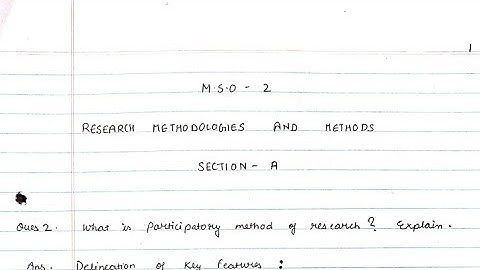 1
M.S.O - 2
RESEARCH METHODOLOGIES AND METHODS
SECTION - A
Ques 2. What is participatory method of research? Explain.
Ans. Delineation of Key Features :